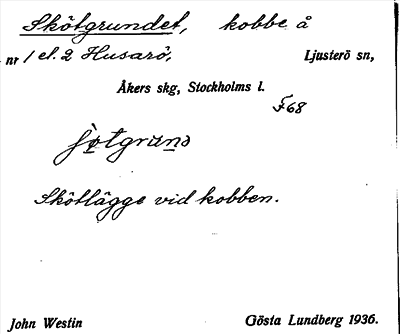 Skötgrundet, kobbe å
nr 1 el. 2 Husarö, Ljusterö sn,
Åkers skg, Stockholms l.
F68
Skötlägge vid kobben.
John Westin Gösta Lundberg 1936.